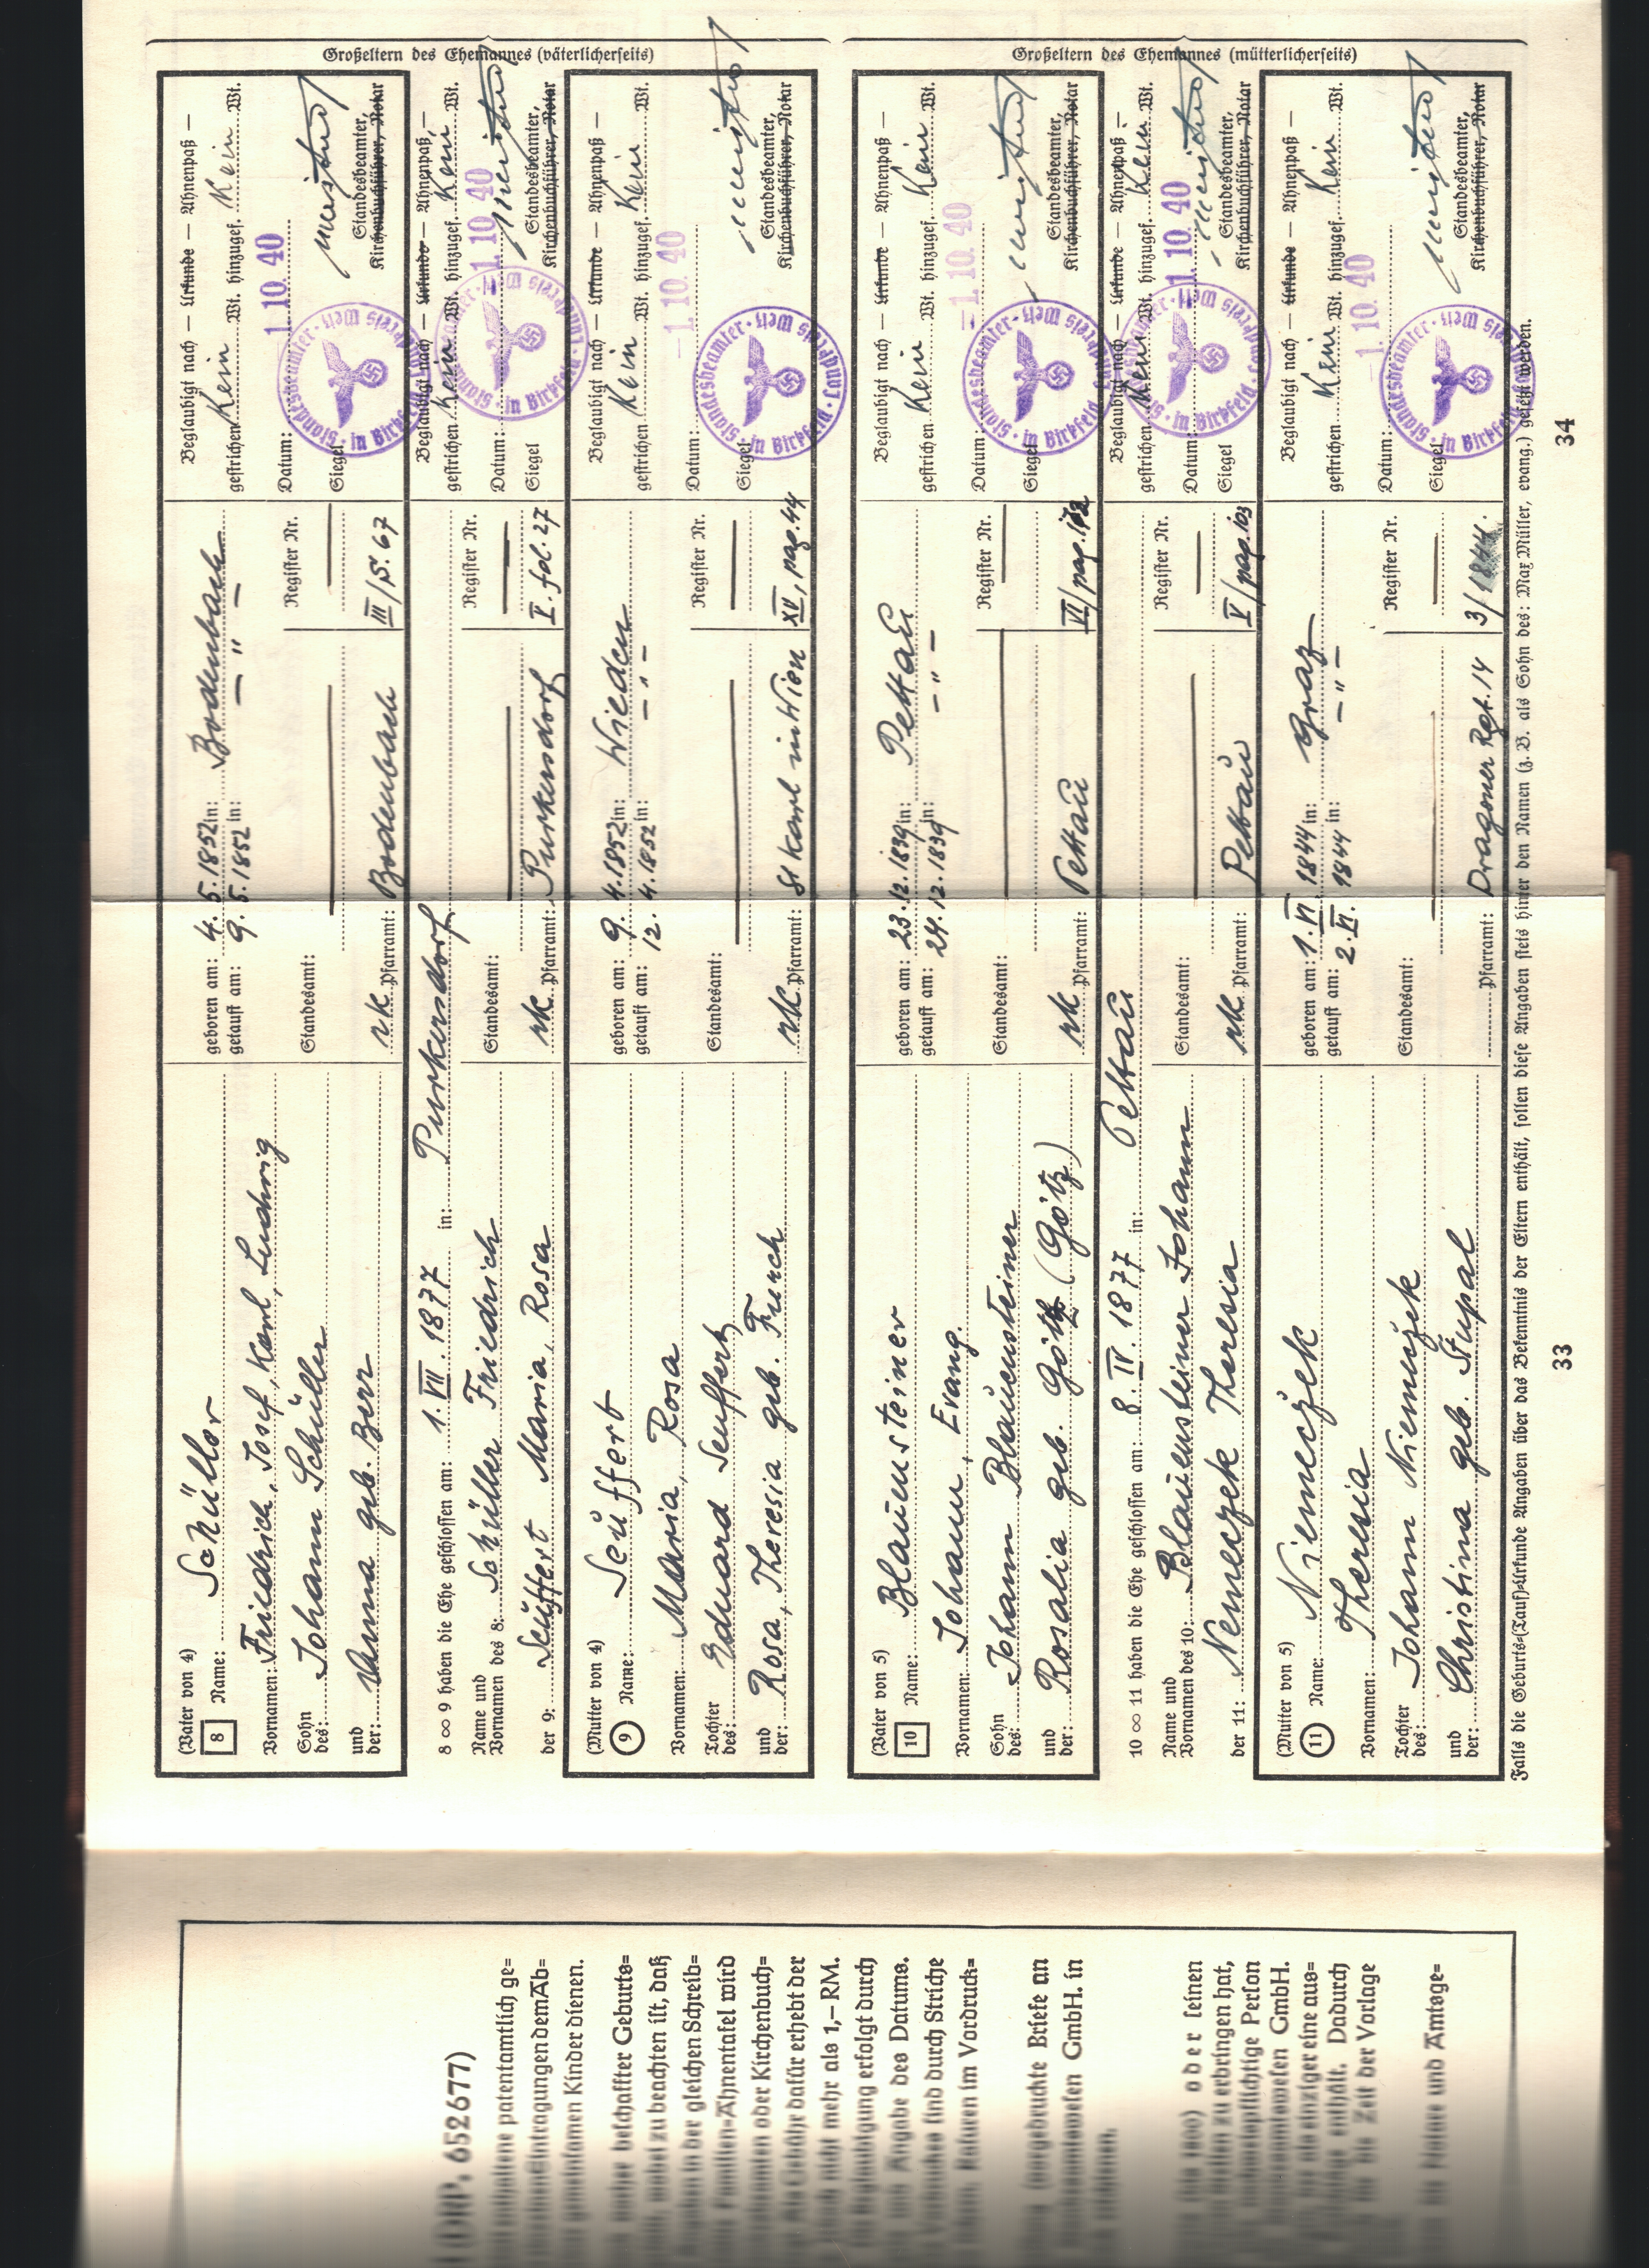 Großeltern des Ehemannes (väterlicherseits)
(Vater von 4)
8 Name: Schüller
Vornamen: Friedrich, Josef, Karl, Ludwig
Sohn des: Johann Schüller
und der: Anna geb. Berr
geboren am: 4. 5. 1852 in: Bodenbach
getauft am: 9. 5. 1852 in: — " —
Standesamt: —
Register Nr. —
rk. Pfarramt: Bodenbach III/S. 67
Beglaubigt nach — Urkunde — Ahnenpaß —
gestrichen Kein Wt. hinzugef. Kein Wt.
Datum: 1. 10. 40
Siegel
Standesbeamter,
Kirchenbuchführer, Notar
Standesbeamter · in Birkfeld · Landkreis Weiz
8 ∞ 9 haben die Ehe geschlossen am: 1. VII. 1877 in: Purkersdorf
Name und Vornamen des 8: Schüller Friedrich
der 9: Seüffert Maria, Rosa
Standesamt: —
Register Nr. —
rk. Pfarramt: Purkersdorf V. fol. 27
Beglaubigt nach — Urkunde — Ahnenpaß —
gestrichen Kein Wt. hinzugef. Kein Wt.
Datum: – 1. 10. 40
Siegel
Standesbeamter,
Kirchenbuchführer, Notar
Standesbeamter · in Birkfeld · Landkreis Weiz
(Mutter von 4)
9 Name: Seüffert
Vornamen: Maria, Rosa
Tochter des: Eduard Seuffert
und der: Rosa, Theresia geb. Furch
geboren am: 9. 4. 1852 in: Wieden
getauft am: 12. 4. 1852 in: — " —
Standesamt: —
Register Nr. —
rk. Pfarramt: St Karl in Wien XV, pag. 44
Beglaubigt nach — Urkunde — Ahnenpaß —
gestrichen Kein Wt. hinzugef. Kein Wt.
Datum: – 1. 10. 40
Siegel
Standesbeamter,
Kirchenbuchführer, Notar
Standesbeamter · in Birkfeld · Landkreis Weiz
Großeltern des Ehemannes (mütterlicherseits)
(Vater von 5)
10 Name: Blauensteiner
Vornamen: Johann, Evang.
Sohn des: Johann Blaüensteiner
und der: Rosalia geb. Göth (Götz)
geboren am: 23. 12. 1839 in: Pettaü
getauft am: 24. 12. 1839 in: — " —
Standesamt: —
Register Nr. —
rk Pfarramt: Pettaü VI/pag.
Beglaubigt nach — Urkunde — Ahnenpaß —
gestrichen Kein Wt. hinzugef. Kein Wt.
Datum: – 1. 10. 40
Siegel
Standesbeamter,
Kirchenbuchführer, Notar
Standesbeamter · in Birkfeld · Landkreis Weiz
10 ∞ 11 haben die Ehe geschlossen am: 8. IV. 1877 in: Pettaü
Name und Vornamen des 10: Blaüensteiner Johann
der 11: Nemeczek Theresia
Standesamt: —
Register Nr. —
rk. Pfarramt: Pettaü V/pag. 103
Beglaubigt nach — Urkunde — Ahnenpaß —
gestrichen Kein Wt. hinzugef. Kein Wt.
Datum: – 1. 10. 40
Siegel
Standesbeamter,
Kirchenbuchführer, Notar
Standesbeamter · in Birkfeld · Landkreis Weiz
(Mutter von 5)
11 Name: Niemeczek
Vornamen: Theresia
Tochter des: Johann Niemeczek
und der: Christina geb. Stupal
geboren am: 1. VI. 1844 in: Graz
getauft am: 2. VI. 1844 in: — " —
Standesamt: —
Register Nr. —
Pfarramt: Dragoner Rgt. 14 3/1844.
Beglaubigt nach — Urkunde — Ahnenpaß —
gestrichen Kein Wt. hinzugef. Kein Wt.
Datum: – 1. 10. 40
Siegel
Standesbeamter,
Kirchenbuchführer, Notar
Standesbeamter · in Birkfeld · Landkreis Weiz
Falls die Geburts-(Tauf)-Urkunde Angaben über das Bekenntnis der Eltern enthält, sollen diese Angaben stets hinter den Namen (z. B. als Sohn des: Max Miller, evang.) gesetzt werden.
33
34
(DRP. 652677)
enthaltene patentamtlich ge=
Eintragungen dem Ab=
gemeinsamen Kinder dienen.
beschaffter Geburts=
zu beachten ist, daß
in der gleichen Schreib=
Familien=Ahnentafel wird
oder Kirchenbuch=
Gebühr dafür erhebt der
nicht mehr als 1,– RM.
erfolgt durch
Angabe des Datums.
sind durch Striche
Rasuren im Vordruck=
(vorgedruckte Briefe an
GmbH. in
oder seinen
zu erbringen hat,
Person
GmbH.
einziger eine aus=
enthält. Dadurch
Zeit der Vorlage
Name und Amtsge=